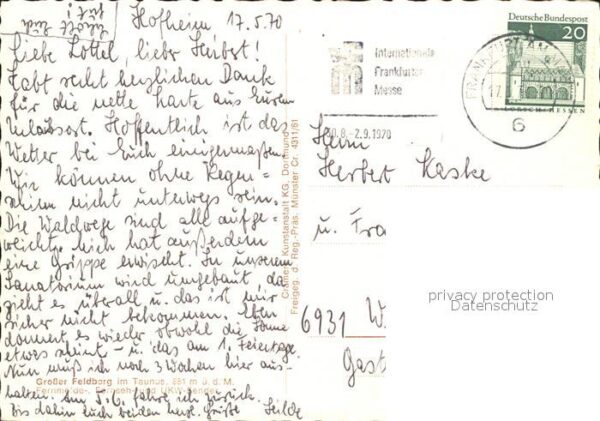 Hofheim 17.5.70
Liebe Lottel, lieber Herbert!
Habt recht herzlichen Dank
für die nette Karte aus Eurem
Urlaubsort. Hoffentlich ist das
Wetter bei Euch einigermaßen.
Wir können ohne Regen-
schirm nicht unterwegs sein.
Die Waldwege sind alle aufge-
weicht. Mich hat außerdem
eine Grippe erwischt. In unserem
Sanatorium wird umgebaut, da
zieht es überall u. das ist mir
sicher nicht bekommen. Eben
donnert es wieder obwohl die Sonne
etwas scheint - u. das am 1. Feiertag.
Nun muß ich noch 3 Wochen hier aus-
halten. Am 5.6. fahre ich zurück.
Bis dahin Euch beiden herzl. Grüße Hilde
Großer Feldberg im Taunus, 881 m ü. d. M.
Fernmelde-, Fernseh- und UKW-Sender
Cramers Kunstanstalt KG, Dortmund
Freigeg. d. Reg.-Präs. Münster Cr. 4311/61
Internationale
Frankfurter
Messe
30.8.-2.9.1970
Deutsche Bundespost
20
FRANKFURT AM
17.
6
LORSCH/HESSEN
Herrn
Herbert Kaske
u. Fra
6931 W
Gast
privacy protection
Datenschutz